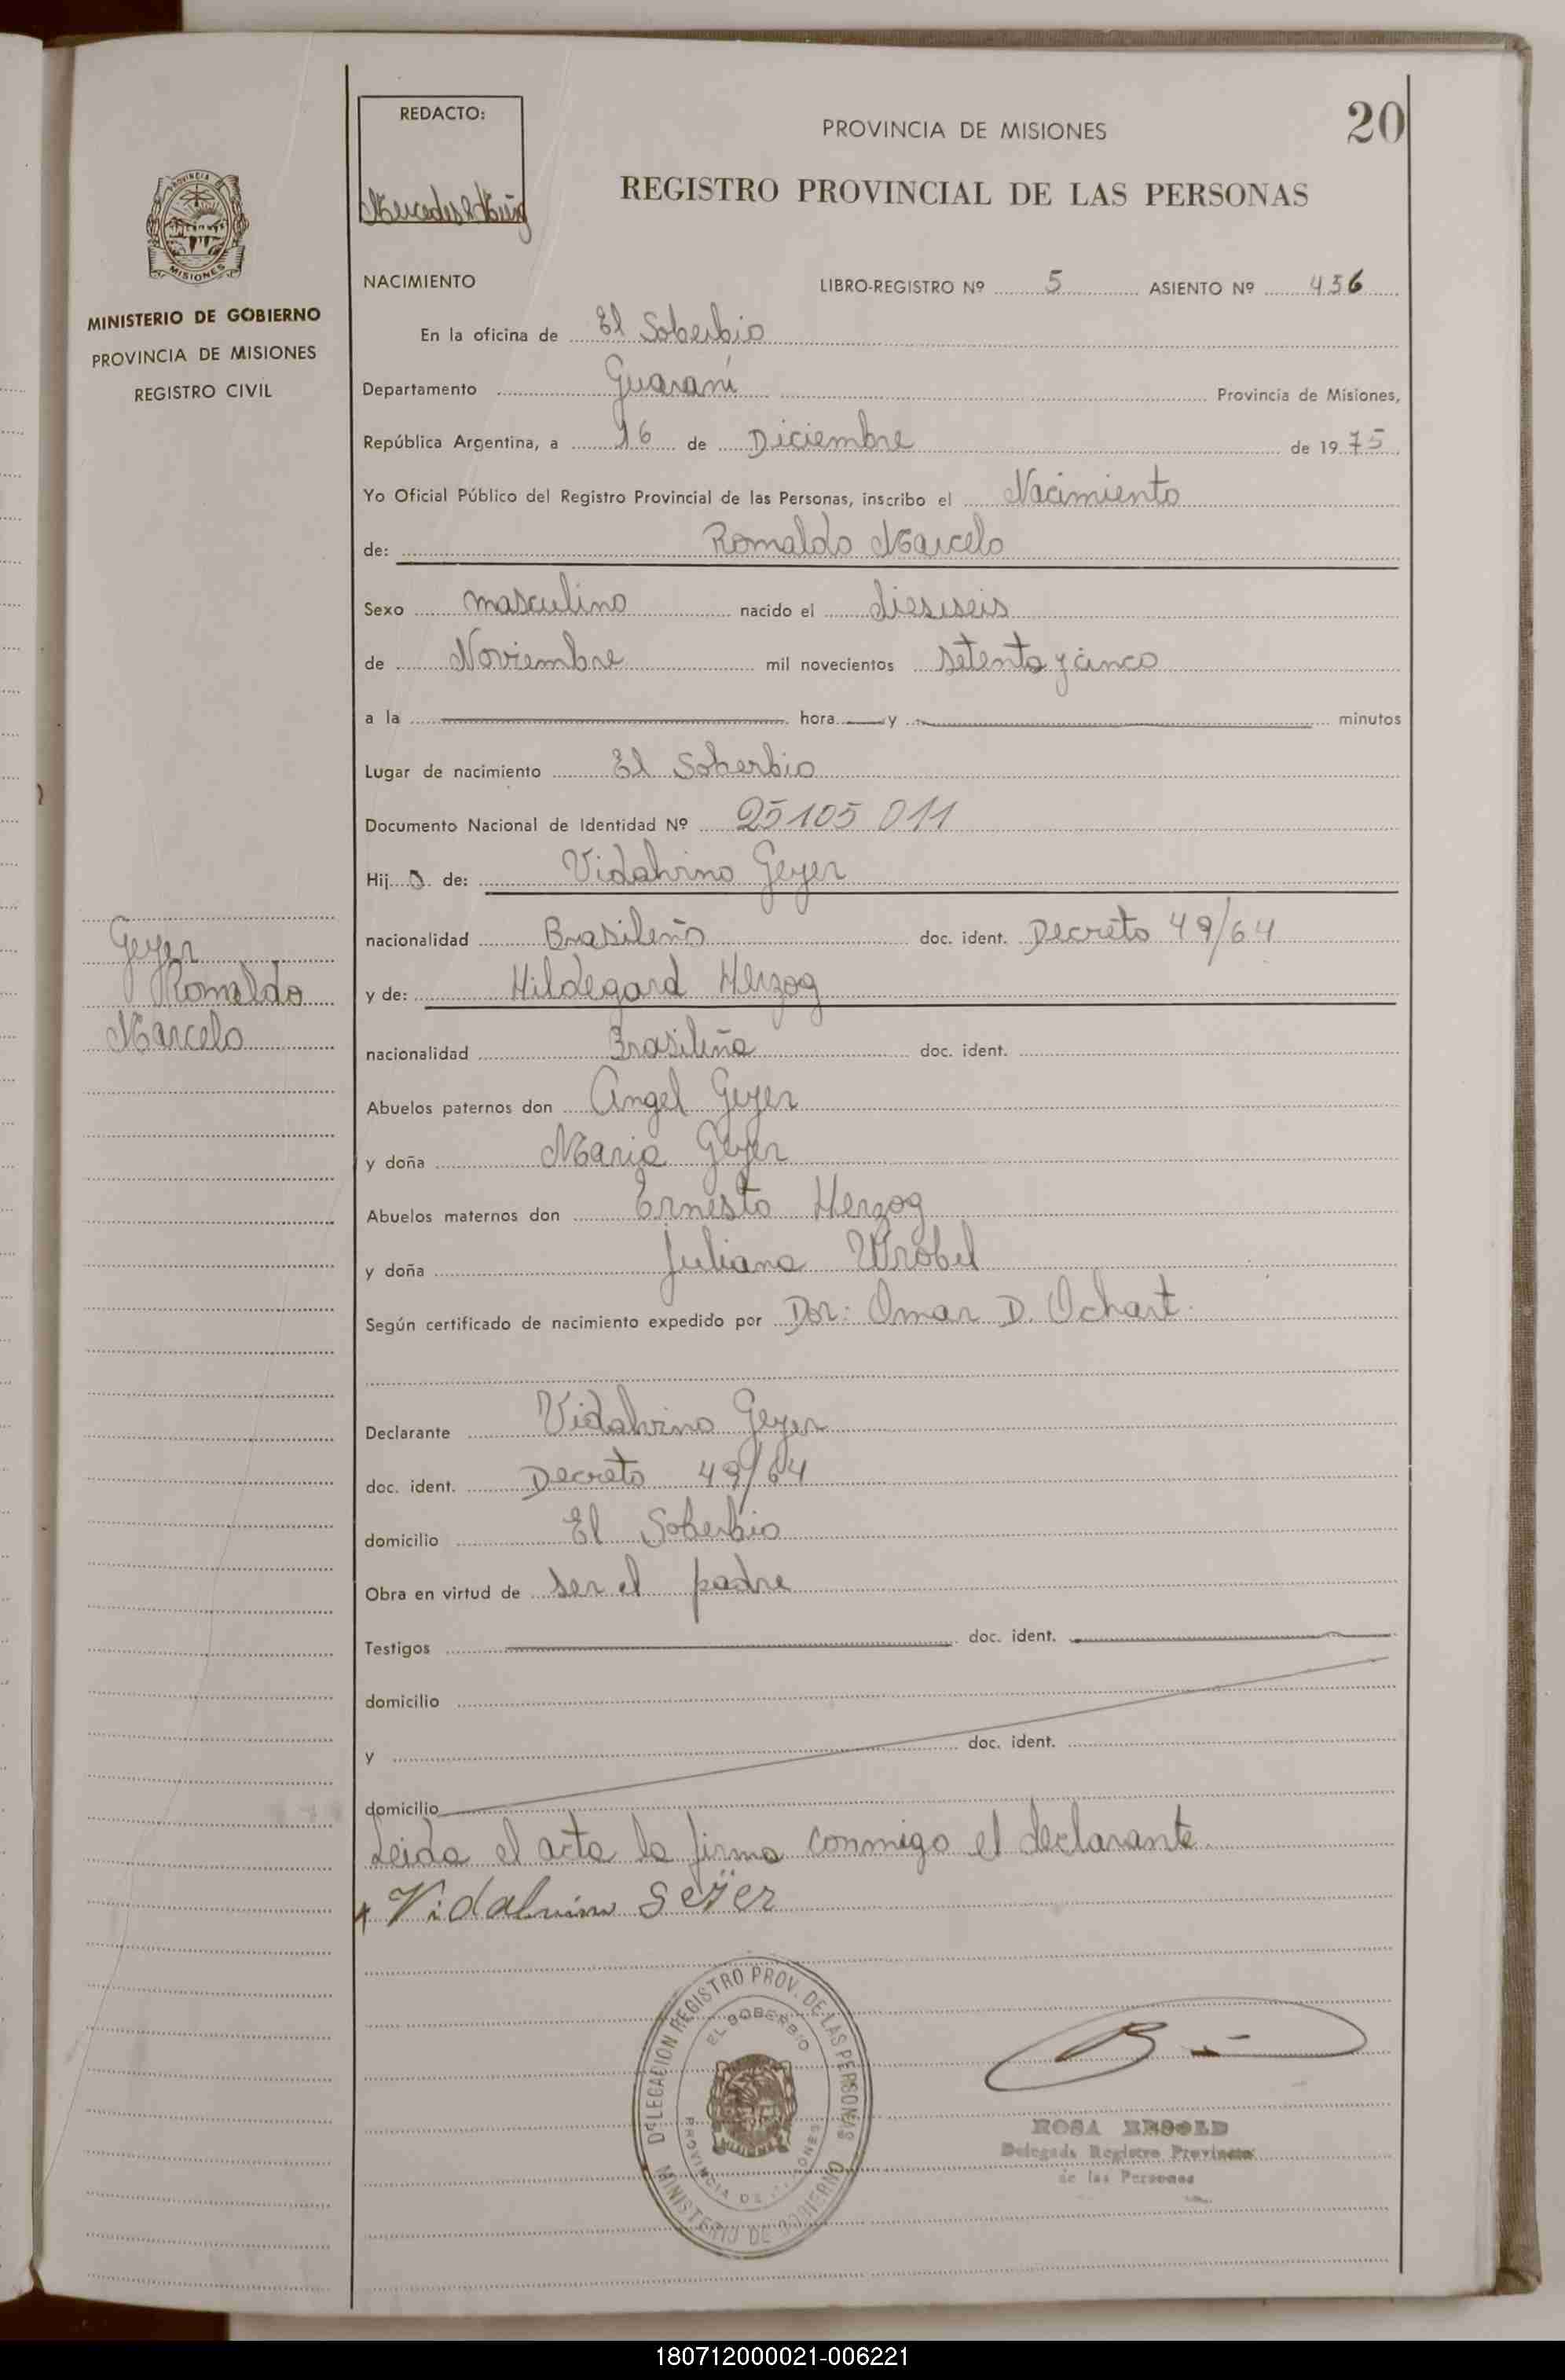 20
REDACTO:
PROVINCIA DE MISIONES
REGISTRO PROVINCIAL DE LAS PERSONAS
PROVINCIA
MISIONES
MINISTERIO DE GOBIERNO
PROVINCIA DE MISIONES
REGISTRO CIVIL
NACIMIENTO LIBRO-REGISTRO Nº 5 ASIENTO Nº 456
En la oficina de El Soberbio
Departamento Guaraní Provincia de Misiones,
República Argentina, a 16 de Diciembre de 1975
Yo Oficial Público del Registro Provincial de las Personas, inscribo el Nacimiento
de: Romaldo Marcelo
Sexo masculino nacido el dieciseis
de Noviembre mil novecientos setenta y cinco
a la hora y minutos
Lugar de nacimiento El Soberbio
Documento Nacional de Identidad Nº 25105 011
Hijo de: Vidalvino Geyer
nacionalidad Brasileño doc. ident. Decreto 49/64
y de: Hildegard Herzog
nacionalidad Brasileña doc. ident.
Abuelos paternos don Angel Geyer
y doña Maria Geyer
Abuelos maternos don Ernesto Herzog
y doña Juliana Wrobel
Según certificado de nacimiento expedido por Dor: Omar D. Ochart.
Declarante Vidalvino Geyer
doc. ident. Decreto 49/64
domicilio El Soberbio
Obra en virtud de ser el padre
Testigos doc. ident.
domicilio
y doc. ident.
domicilio
Leida el acta la firma conmigo el declarante
Vidalvino Geÿer
Geyer
Romaldo
Marcelo
DELEGACION REGISTRO PROV. DE LAS PERSONAS
EL SOBERBIO
PROVINCIA DE MISIONES
MINISTERIO DE GOBIERNO
ROSA
Delegada Registro Provincial
de las Personas
180712000021-006221